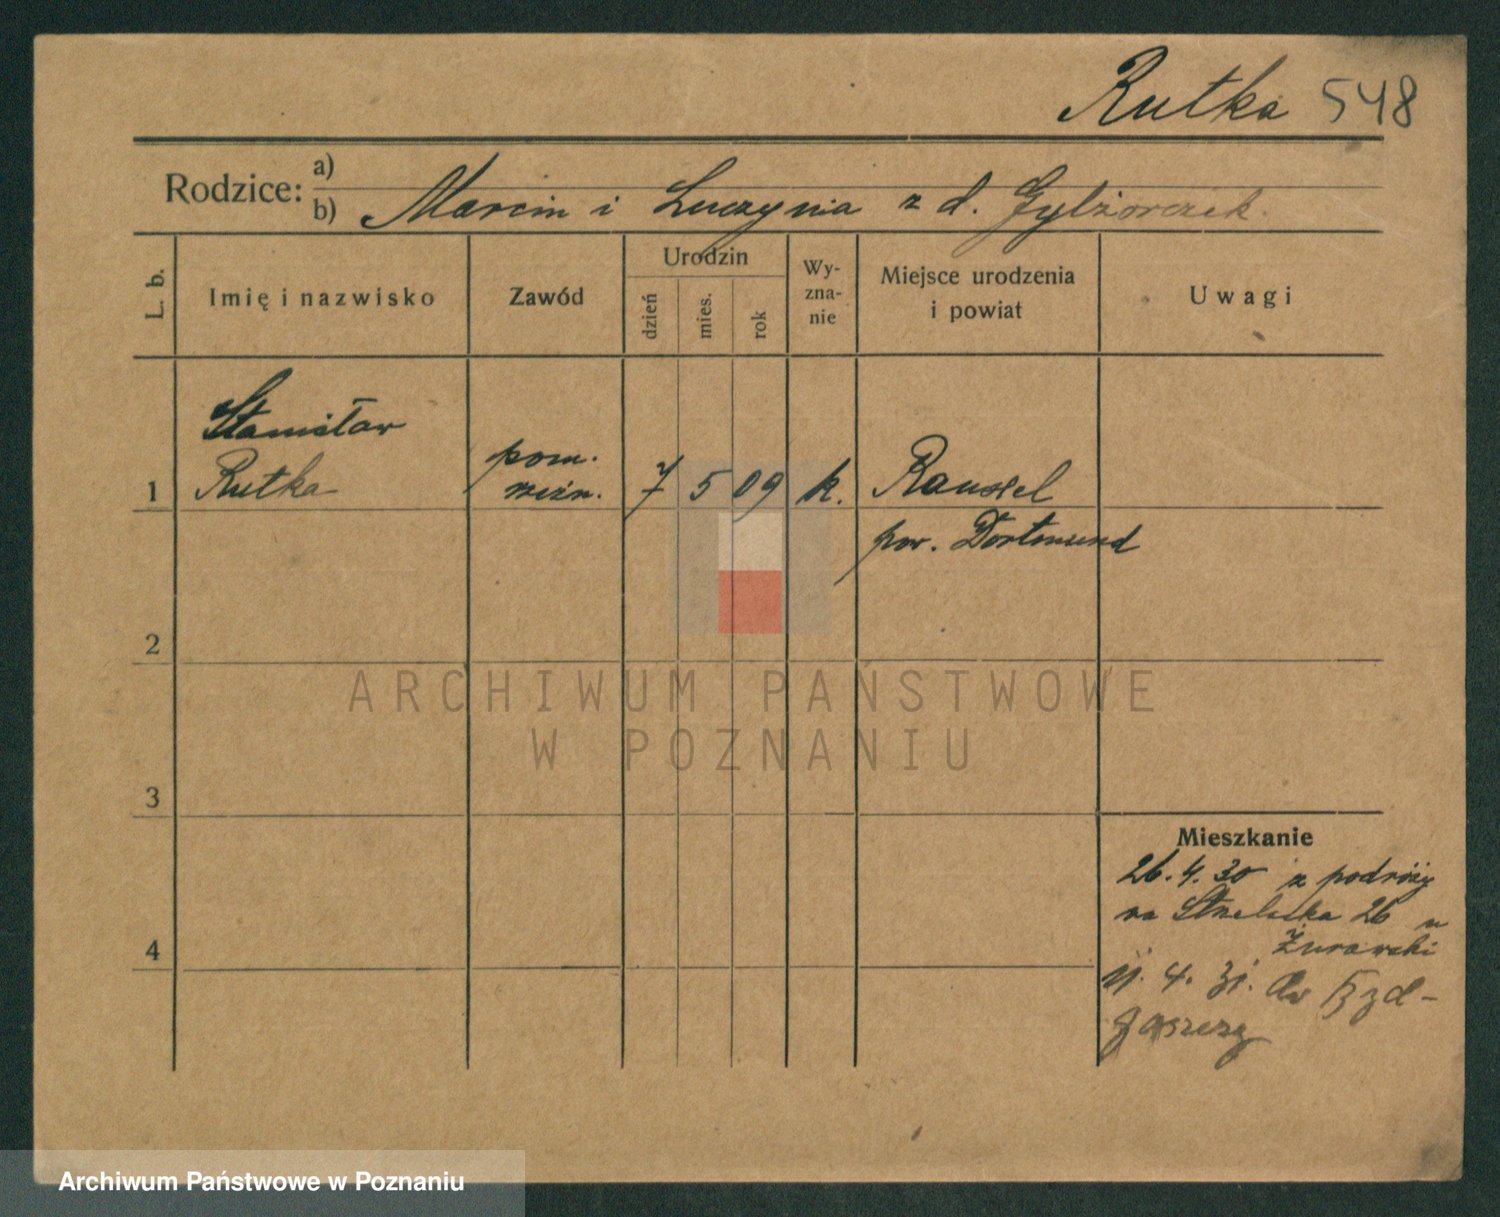 Rutka 548
Rodzice: a)
b) Marcin i Luczynia z d.
L. b.
Imię i nazwisko
Zawód
Urodzin
dzień
mies.
rok
Wy-
zna-
nie
Miejsce urodzenia
i powiat
Uwagi
Stanisław
1 Rutka
pom.
rzeźn.
7 5 09 k. Rauxel
pow. Dortmund
2
3
4
ARCHIWUM PAŃSTWOWE
W POZNANIU
Mieszkanie
26.4.30 z podróży
na Strzelecka 26 u
Żurawski
11. 4. 31. do
Archiwum Państwowe w Poznaniu